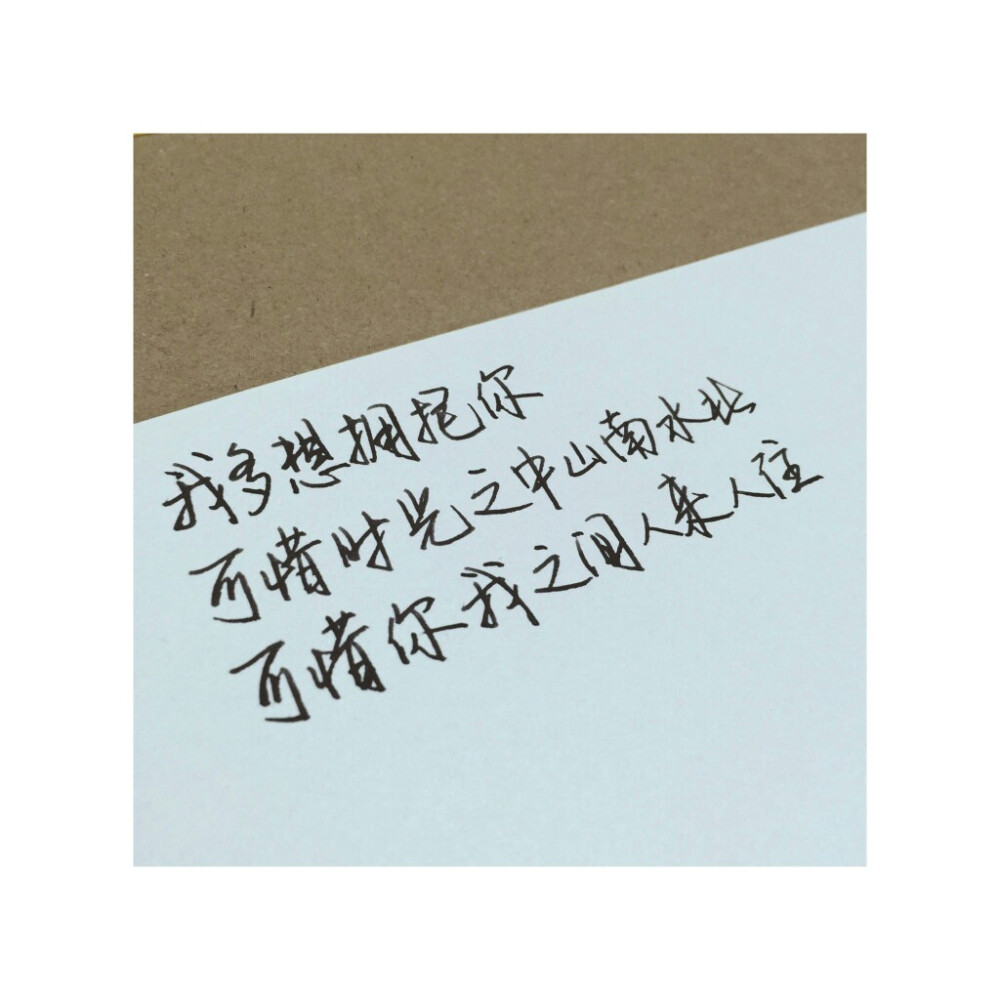 我多想拥抱你
可惜时光之中山南水北
可惜你我之间人来人往